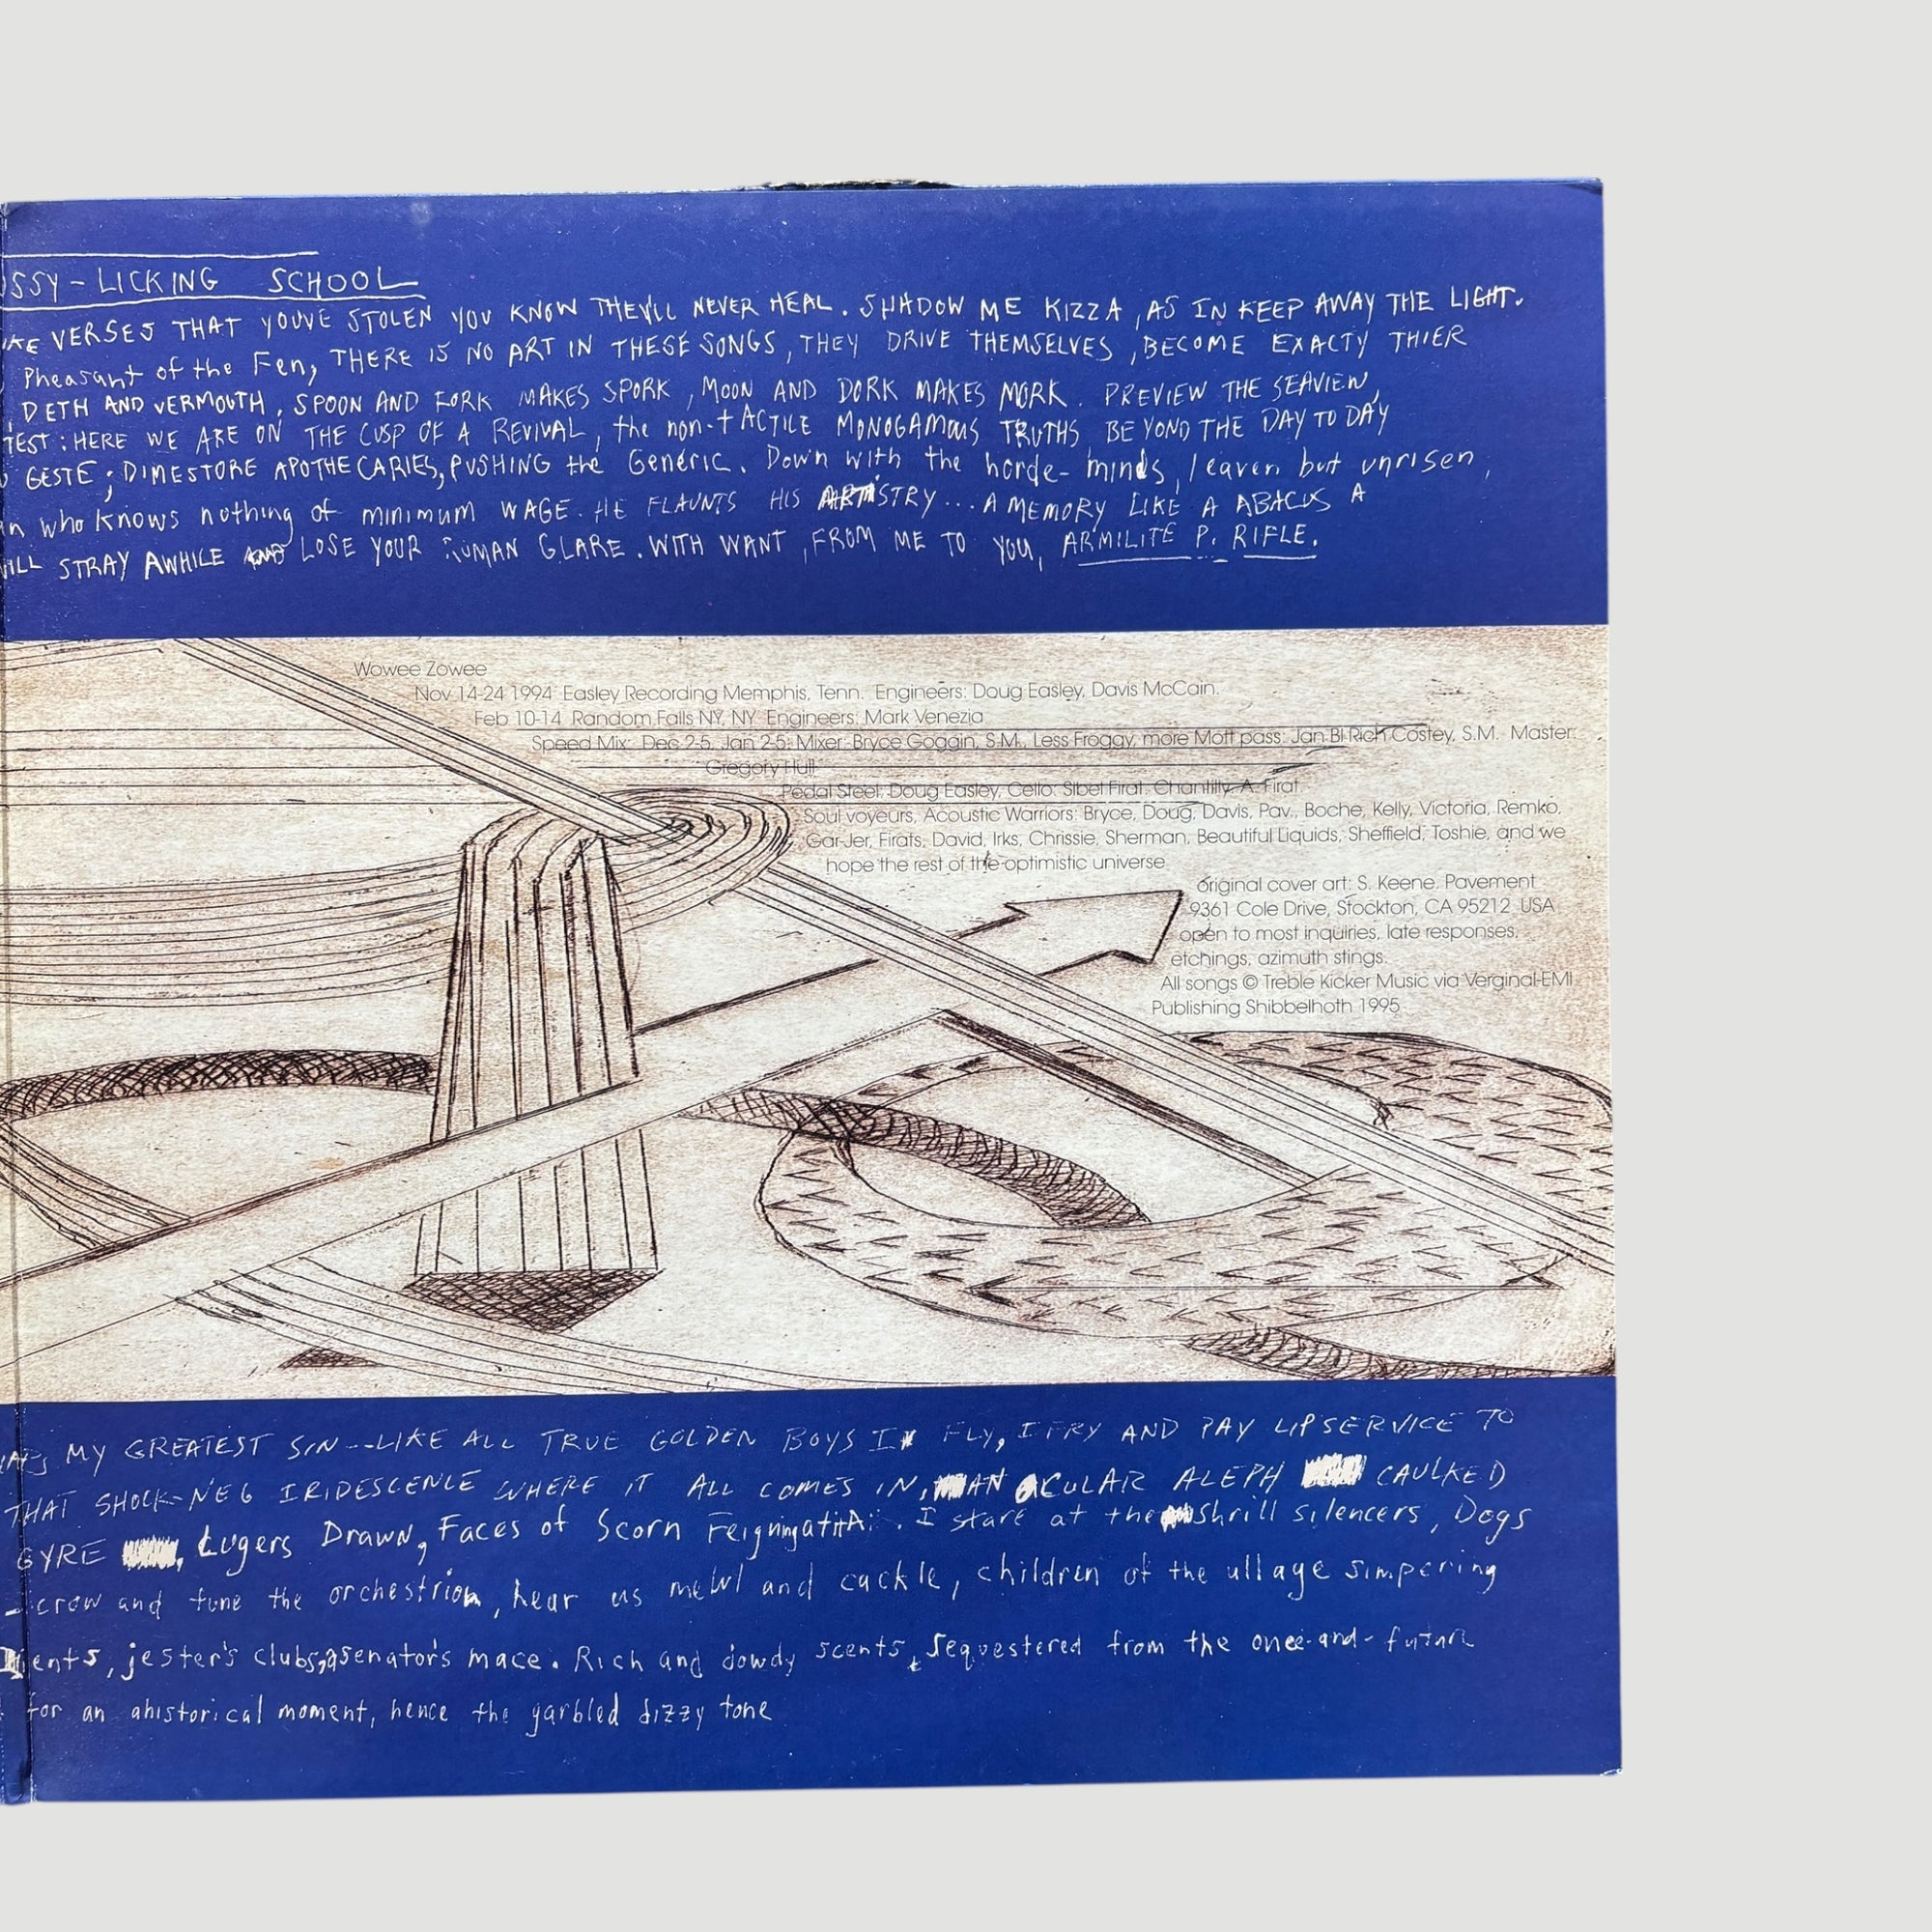 SSY-LICKING SCHOOL
VERSES THAT YOUVE STOLEN YOU KNOW THEY'LL NEVER HEAL. SHADOW ME KIZZA, AS IN KEEP AWAY THE LIGHT.
Pheasant of the Fen, THERE IS NO ART IN THESE SONGS, THEY DRIVE THEMSELVES, BECOME EXACTY THIER
DETH AND VERMOUTH. SPOON AND FORK MAKES SPORK, MOON AND DORK MAKES MORK. PREVIEW THE SEAVIEW,
TEST: HERE WE ARE ON THE CUSP OF A REVIVAL, the non-tACTILE MONOGAMOUS TRUTHS BEYOND THE DAY TO DAY
GESTE; DIMESTORE APOTHECARIES, PUSHING the Generic. Down with the horde-minds, leaven but unrisen,
who knows nothing of minimum WAGE. HE FLAUNTS HIS ARTISTRY... A MEMORY LIKE A ABACUS A
ILL STRAY AWHILE AND LOSE YOUR ROMAN GLARE. WITH WANT, FROM ME TO YOU, ARMILITE P. RIFLE.
Wowee Zowee
Nov 14-24 1994 Easley Recording Memphis, Tenn. Engineers: Doug Easley, Davis McCain.
Feb 10-14 Random Falls NY, NY Engineers: Mark Venezia
Speed Mix: Dec 2-5, Jan 2-5: Mixer: Bryce Goggin, S.M., Less Froggy, more Mott pass: Jan BI-Rich Costey, S.M. Master:
Gregory Hull
Pedal Steel: Doug Easley, Cello: Sibel Firat, Chantilly A. Firat
Soul voyeurs, Acoustic Warriors: Bryce, Doug, Davis, Pav., Boche, Kelly, Victoria, Remko,
Gar-Jer, Firats, David, Irks, Chrissie, Sherman, Beautiful Liquids, Sheffield, Toshie, and we
hope the rest of the optimistic universe.
original cover art: S. Keene. Pavement
9361 Cole Drive, Stockton, CA 95212 USA
open to most inquiries, late responses,
etchings, azimuth stings.
All songs © Treble Kicker Music via Verginal-EMI
Publishing Shibbelhoth 1995
MY GREATEST SIN--LIKE ALL TRUE GOLDEN BOYS I FLY, I FRY AND PAY LIPSERVICE TO
THAT SHOCK-NEG IRIDESCENCE WHERE IT ALL COMES IN, AN OCULAR ALEPH CAULKED
GYRE, Lugers Drawn, Faces of Scorn. I stare at the Shrill silencers, Dogs
crow and tune the orchestrion, hear us mewl and cackle, children of the ullage simpering
ients, jester's clubs, a senator's mace. Rich and dowdy scents, sequestered from the once-and-future
for an ahistorical moment, hence the garbled dizzy tone